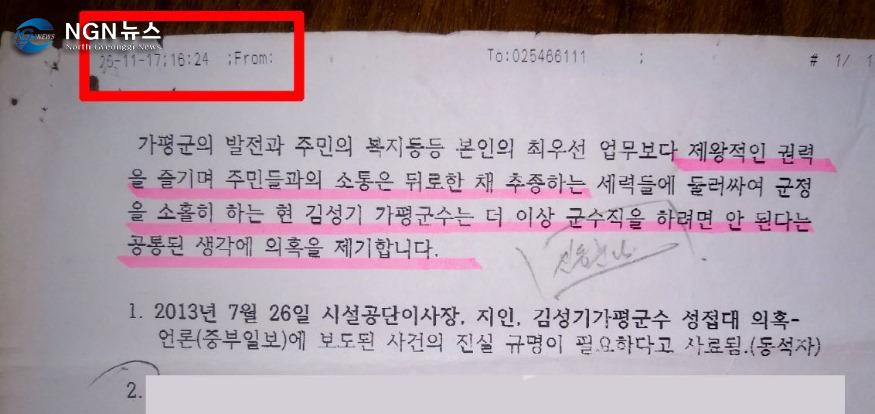 NGN뉴스
NEWS
North Gyeonggi News
26-11-17;16:24 ;From:
To:025466111 ;
# 1/ 1
가평군의 발전과 주민의 복지등등 본인의 최우선 업무보다 제왕적인 권력
을 즐기며 주민들과의 소통은 뒤로한 채 추종하는 세력들에 둘러싸여 군정
을 소홀히 하는 현 김성기 가평군수는 더 이상 군수직을 하려면 안 된다는
공통된 생각에 의혹을 제기합니다.
1. 2013년 7월 26일 시설공단이사장, 지인, 김성기가평군수 성접대 의혹-
언론(중부일보)에 보도된 사건의 진실 규명이 필요하다고 사료됨.(동석자)
2.